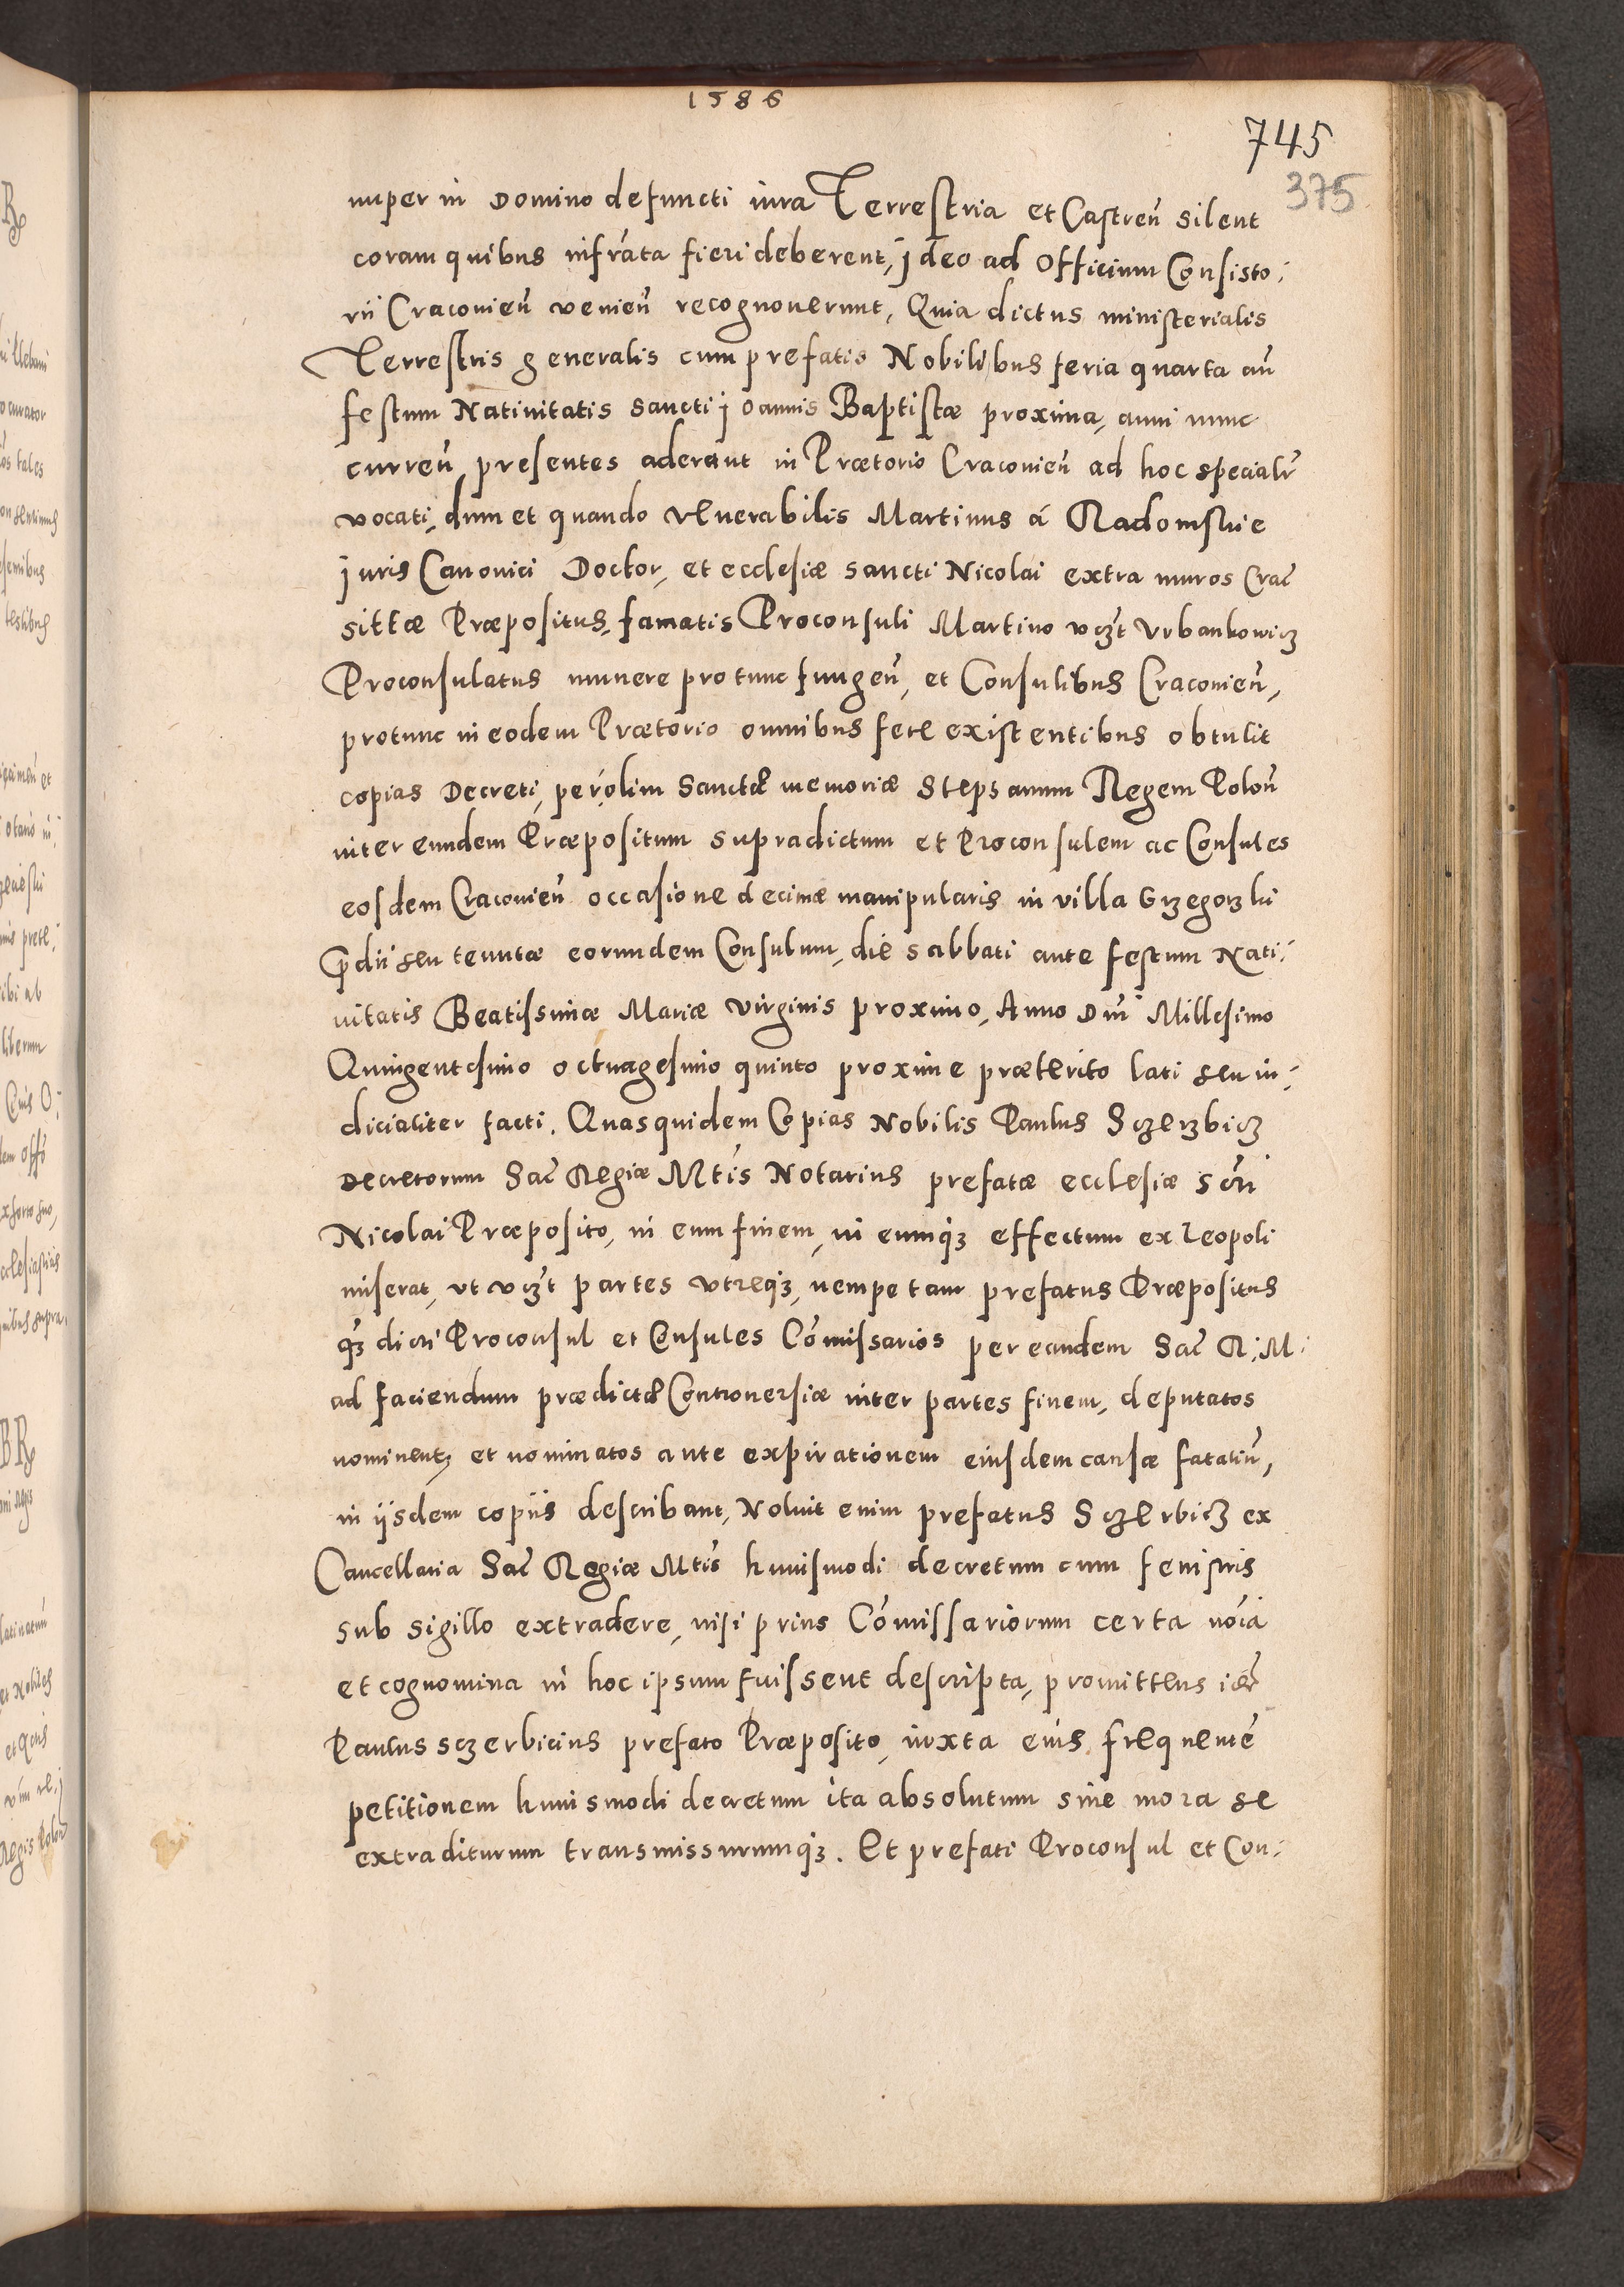 1586
745
375
nuper in Domino defuncti iura Terrestria et Castreñ silent
coram quibus infrata fieri deberent, jdeo ad Officium Consisto:
rii Cracovieñ venieñ recognoverunt, Quia dictus ministerialis
Terrestris generalis cum prefatis Nobilibus feria quarta añ
festum Nativitatis Sancti joannis Baptistæ proxima, anni nunc
curreñ presentes aderant in Prætorio Cracovieñ ad hoc specialr̃
vocati, dum et quando Venerabilis Martinus á Radomskie
juris Canonici Doctor, et ecclesiæ sancti Nicolai extra muros Crac̃
sittæ Præpositus, famatis Proconsuli Martino vcꝫt Vrbankowicz
Proconsulatus munere protunc fungeñ, et Consulibus Cracovieñ,
protunc in eodem Prætorio omnibus fere existentibus obtulit
copias Decreti, per olim Sanctæ memoriæ Stephanum Regem Poloñ
inter eundem Præpositum supradictum et Proconsulem ac Consules
eosdem Cracovieñ occasione decimæ manipularis in villa Grzegorzki
p̃dii seu tenutæ eorundem Consulum, die sabbati ante festum Nati:
vitatis Beatissimæ Mariæ virginis proximo, Anno Dm̃ Millesimo
Quingentesimo octuagesimo quinto proxime præterito lati seu iu:
dicialiter facti. Quas quidem Copias Nobilis Paulus Sczerzbicz
Decretorum Sac̃ Regiæ Mtis Notarius prefatæ ecclesiæ scti
Nicolai Præposito, in eum finem, in eumqꝫ effectum ex Leopoli
miserat, vt vcꝫt partes vtreqꝫ, nempe tam prefatus Præpositus
qꝫ dicti Proconsul et Consules Cōmissarios per eandem Sac̃ R: M:
ad faciendum prædictæ Controversiæ inter partes finem, deputatos
nominent et nominatos ante expirationem eiusdem causæ fataliũ,
in ijsdem copiis describant, Noluit enim prefatus Sczerbicz ex
Cancellaria Sac̃ Regiæ Mtis huiusmodi decretum cum fenistris
sub sigillo extradere, nisi prius Cōmissariorum certa noĩa
et cognomina in hoc ipsum fuissent descripta, promittens idẽ
Paulus sczerbicius prefato Præposito, iuxta eius frequentẽ
petitionem huiusmodi decretum ita absolutum sine mora se
extraditurum transmissurumqꝫ. Et prefati Proconsul et Con: